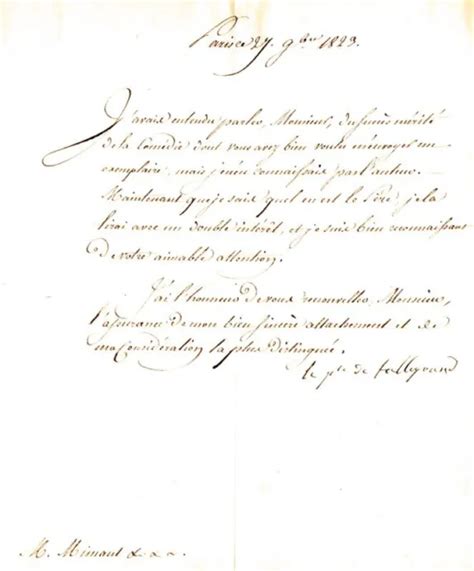 Paris ce 27. 9bre 1823.
J'avais entendu parler, Monsieur, du succès mérité
de la Comédie dont vous avez bien voulu m'envoyer un
exemplaire, mais j'en connaissais pas l'auteur.
Maintenant que je sais quel en est le Père, je la
lirai avec un double intérêt, et je suis bien reconnaissant
de votre aimable attention.
J'ai l'honneur de vous renouveller, Monsieur,
l'assurance de mon bien sincère attachement et de
ma Considération la plus distinguée.
le pce de talleyrand
M. Mimaut &.a.a.